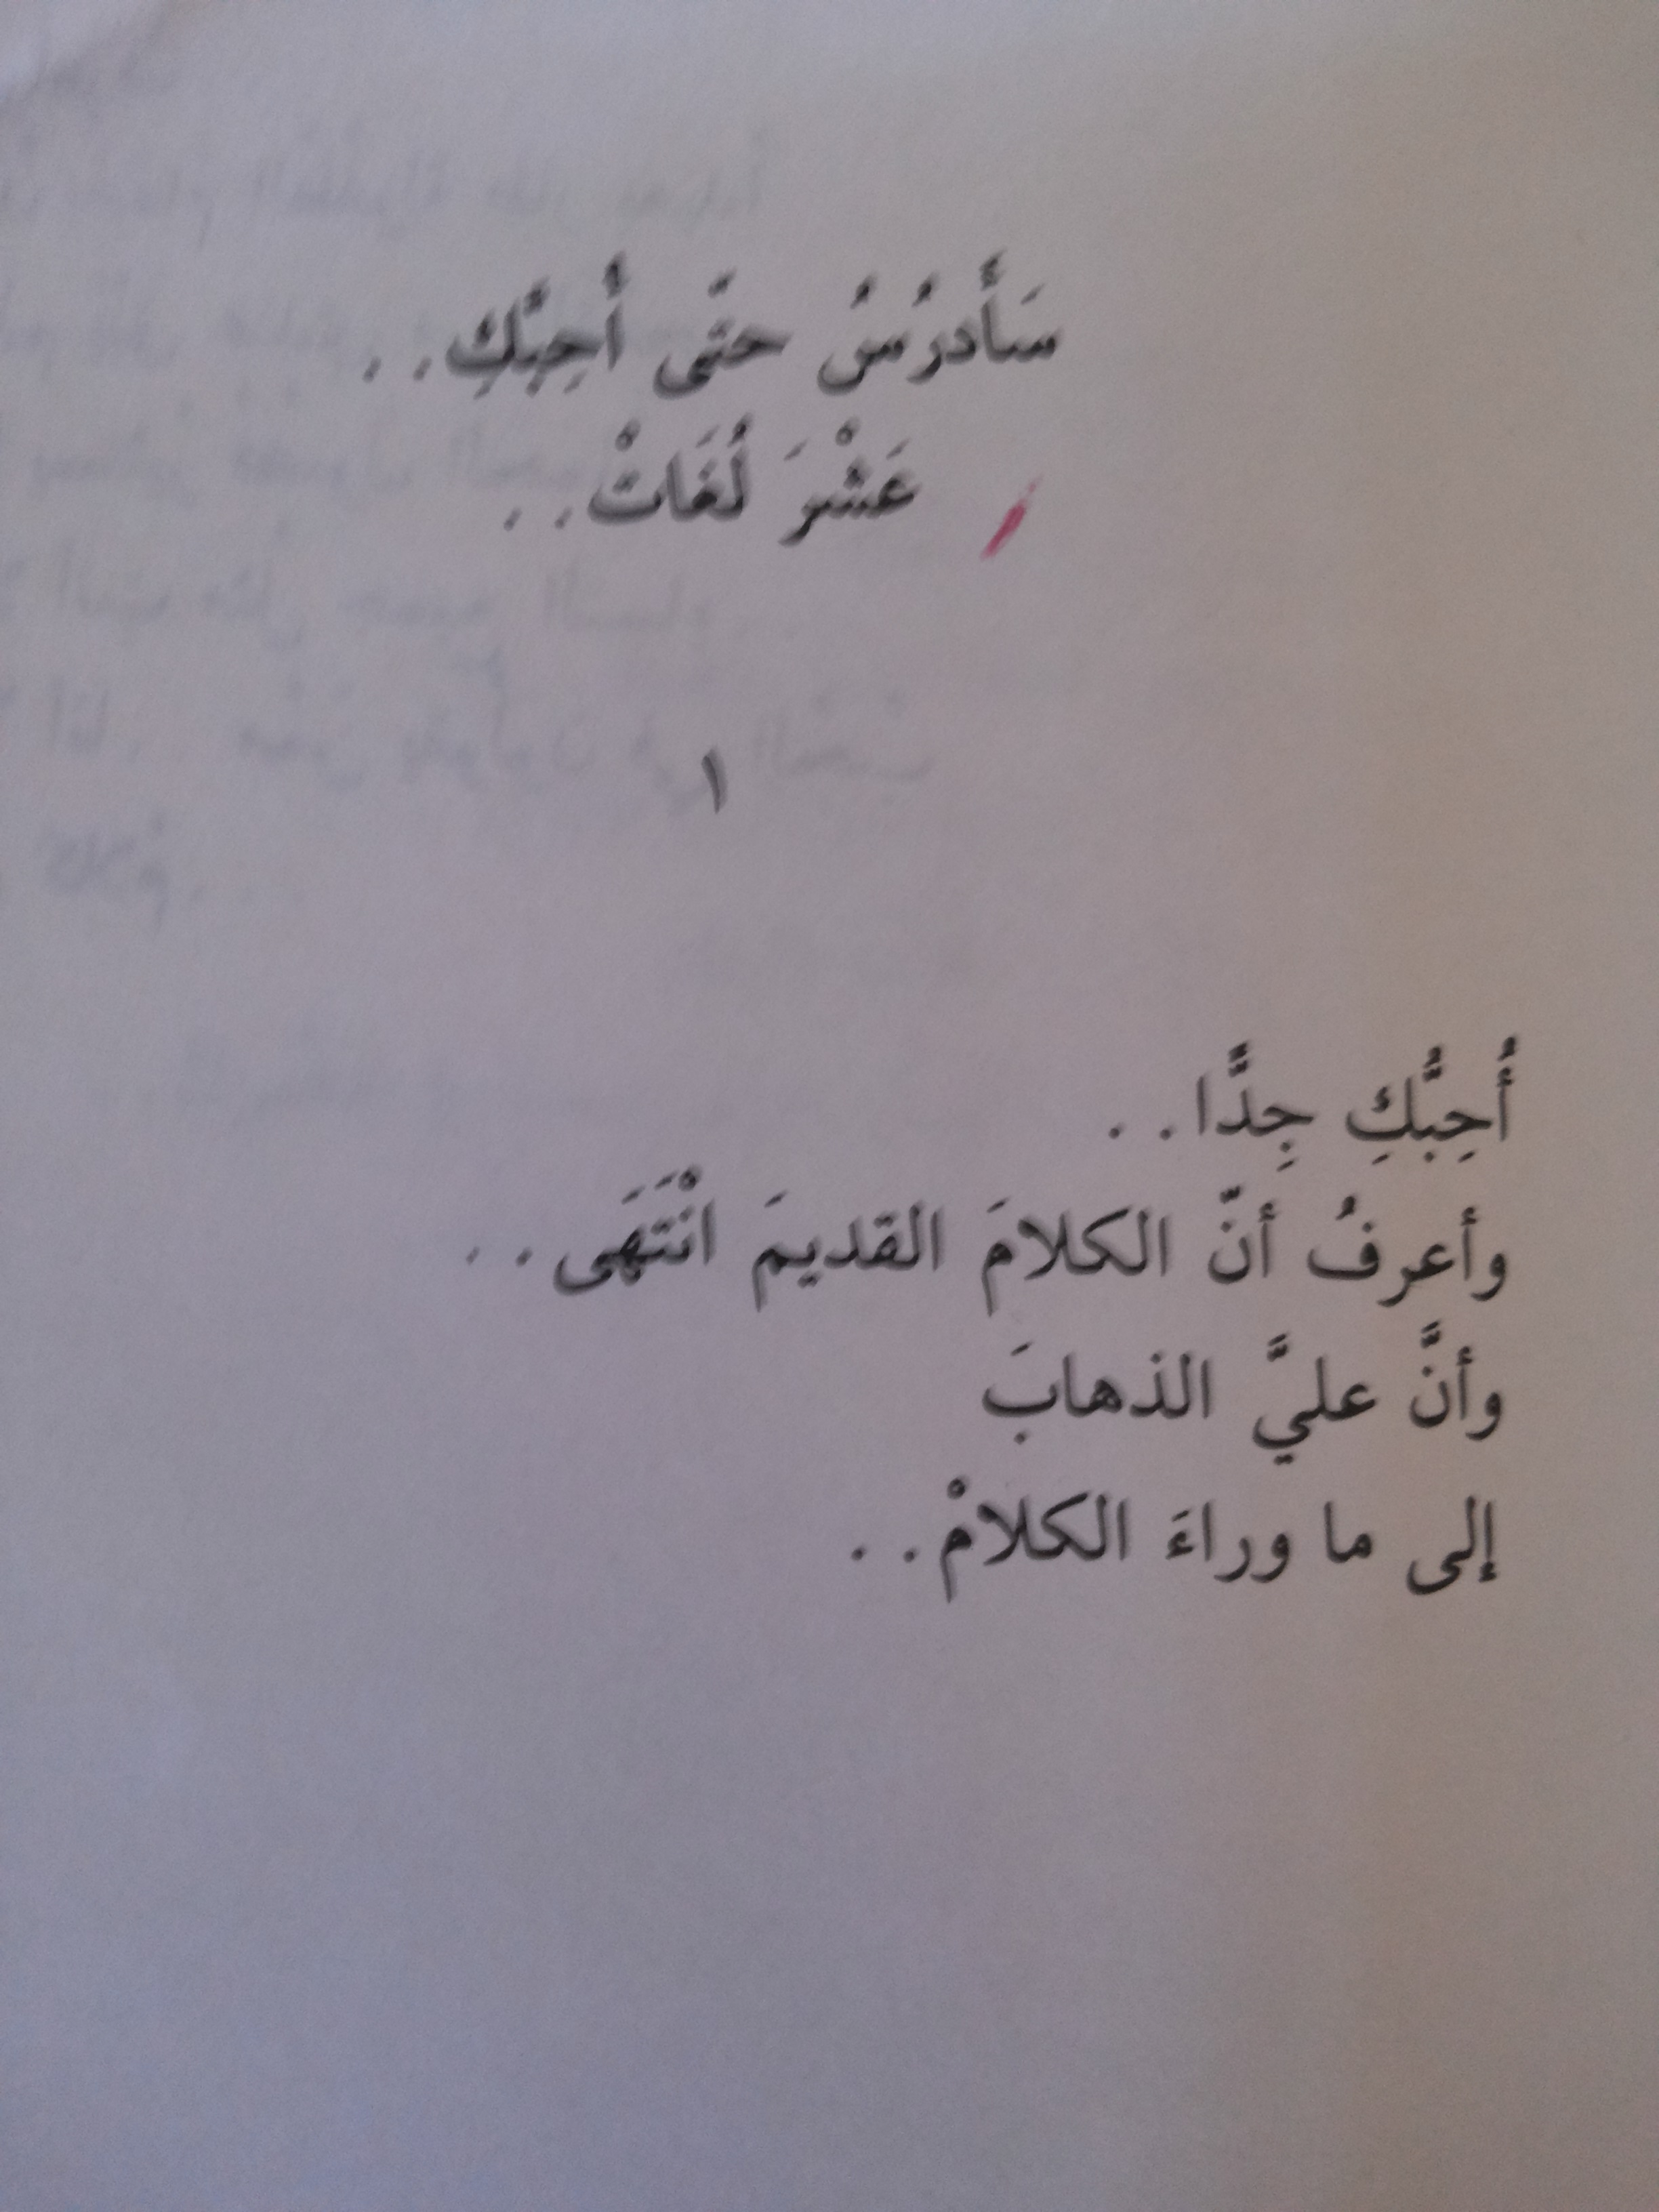 سَأَدرُسُ حتّى أُحِبَّكِ. .
عَشْرَ لُغَاتْ. .
١
أُحِبُّكِ جِدًّا. .
وأعرفُ أنّ الكلامَ القديمَ انْتَهَى. .
وأنَّ عليَّ الذهابَ
إلى ما وراءَ الكلامْ. .